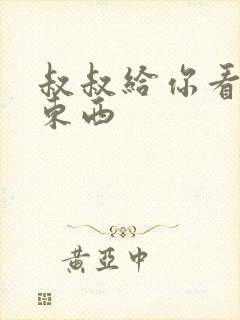 叔叔給你看
東西
黃亞中